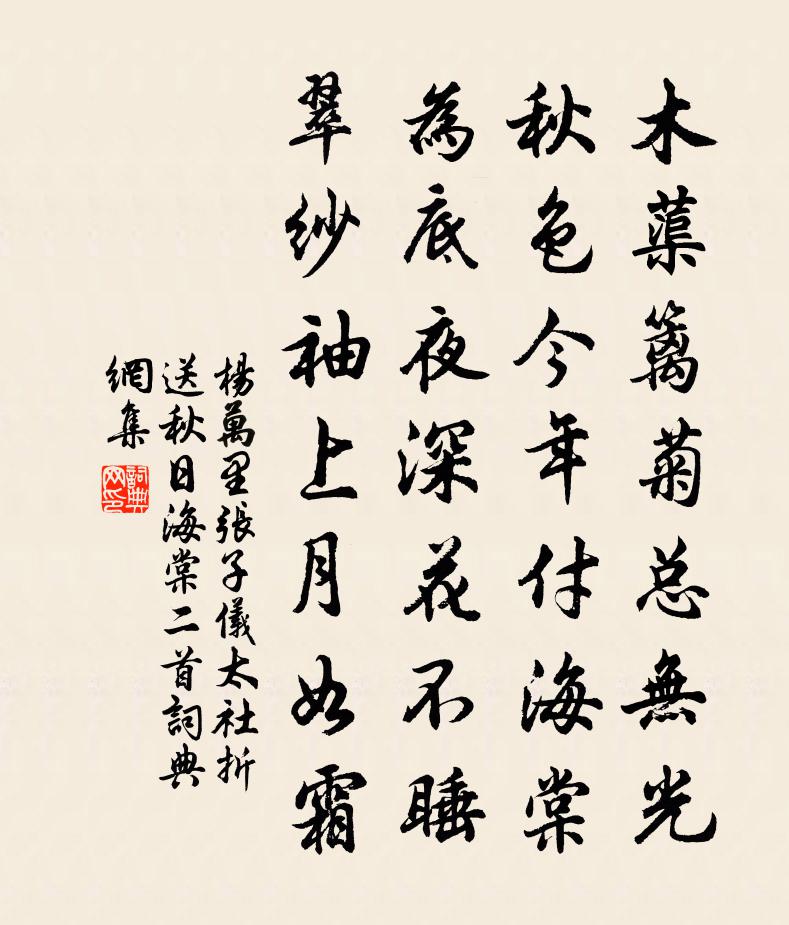 木蕖篱菊总無光
秋色今年付海棠
為底夜深花不睡
翠紗袖上月如霜
楊萬里張子儀太社折
送秋日海棠二首詞典
網集
詞典
网印